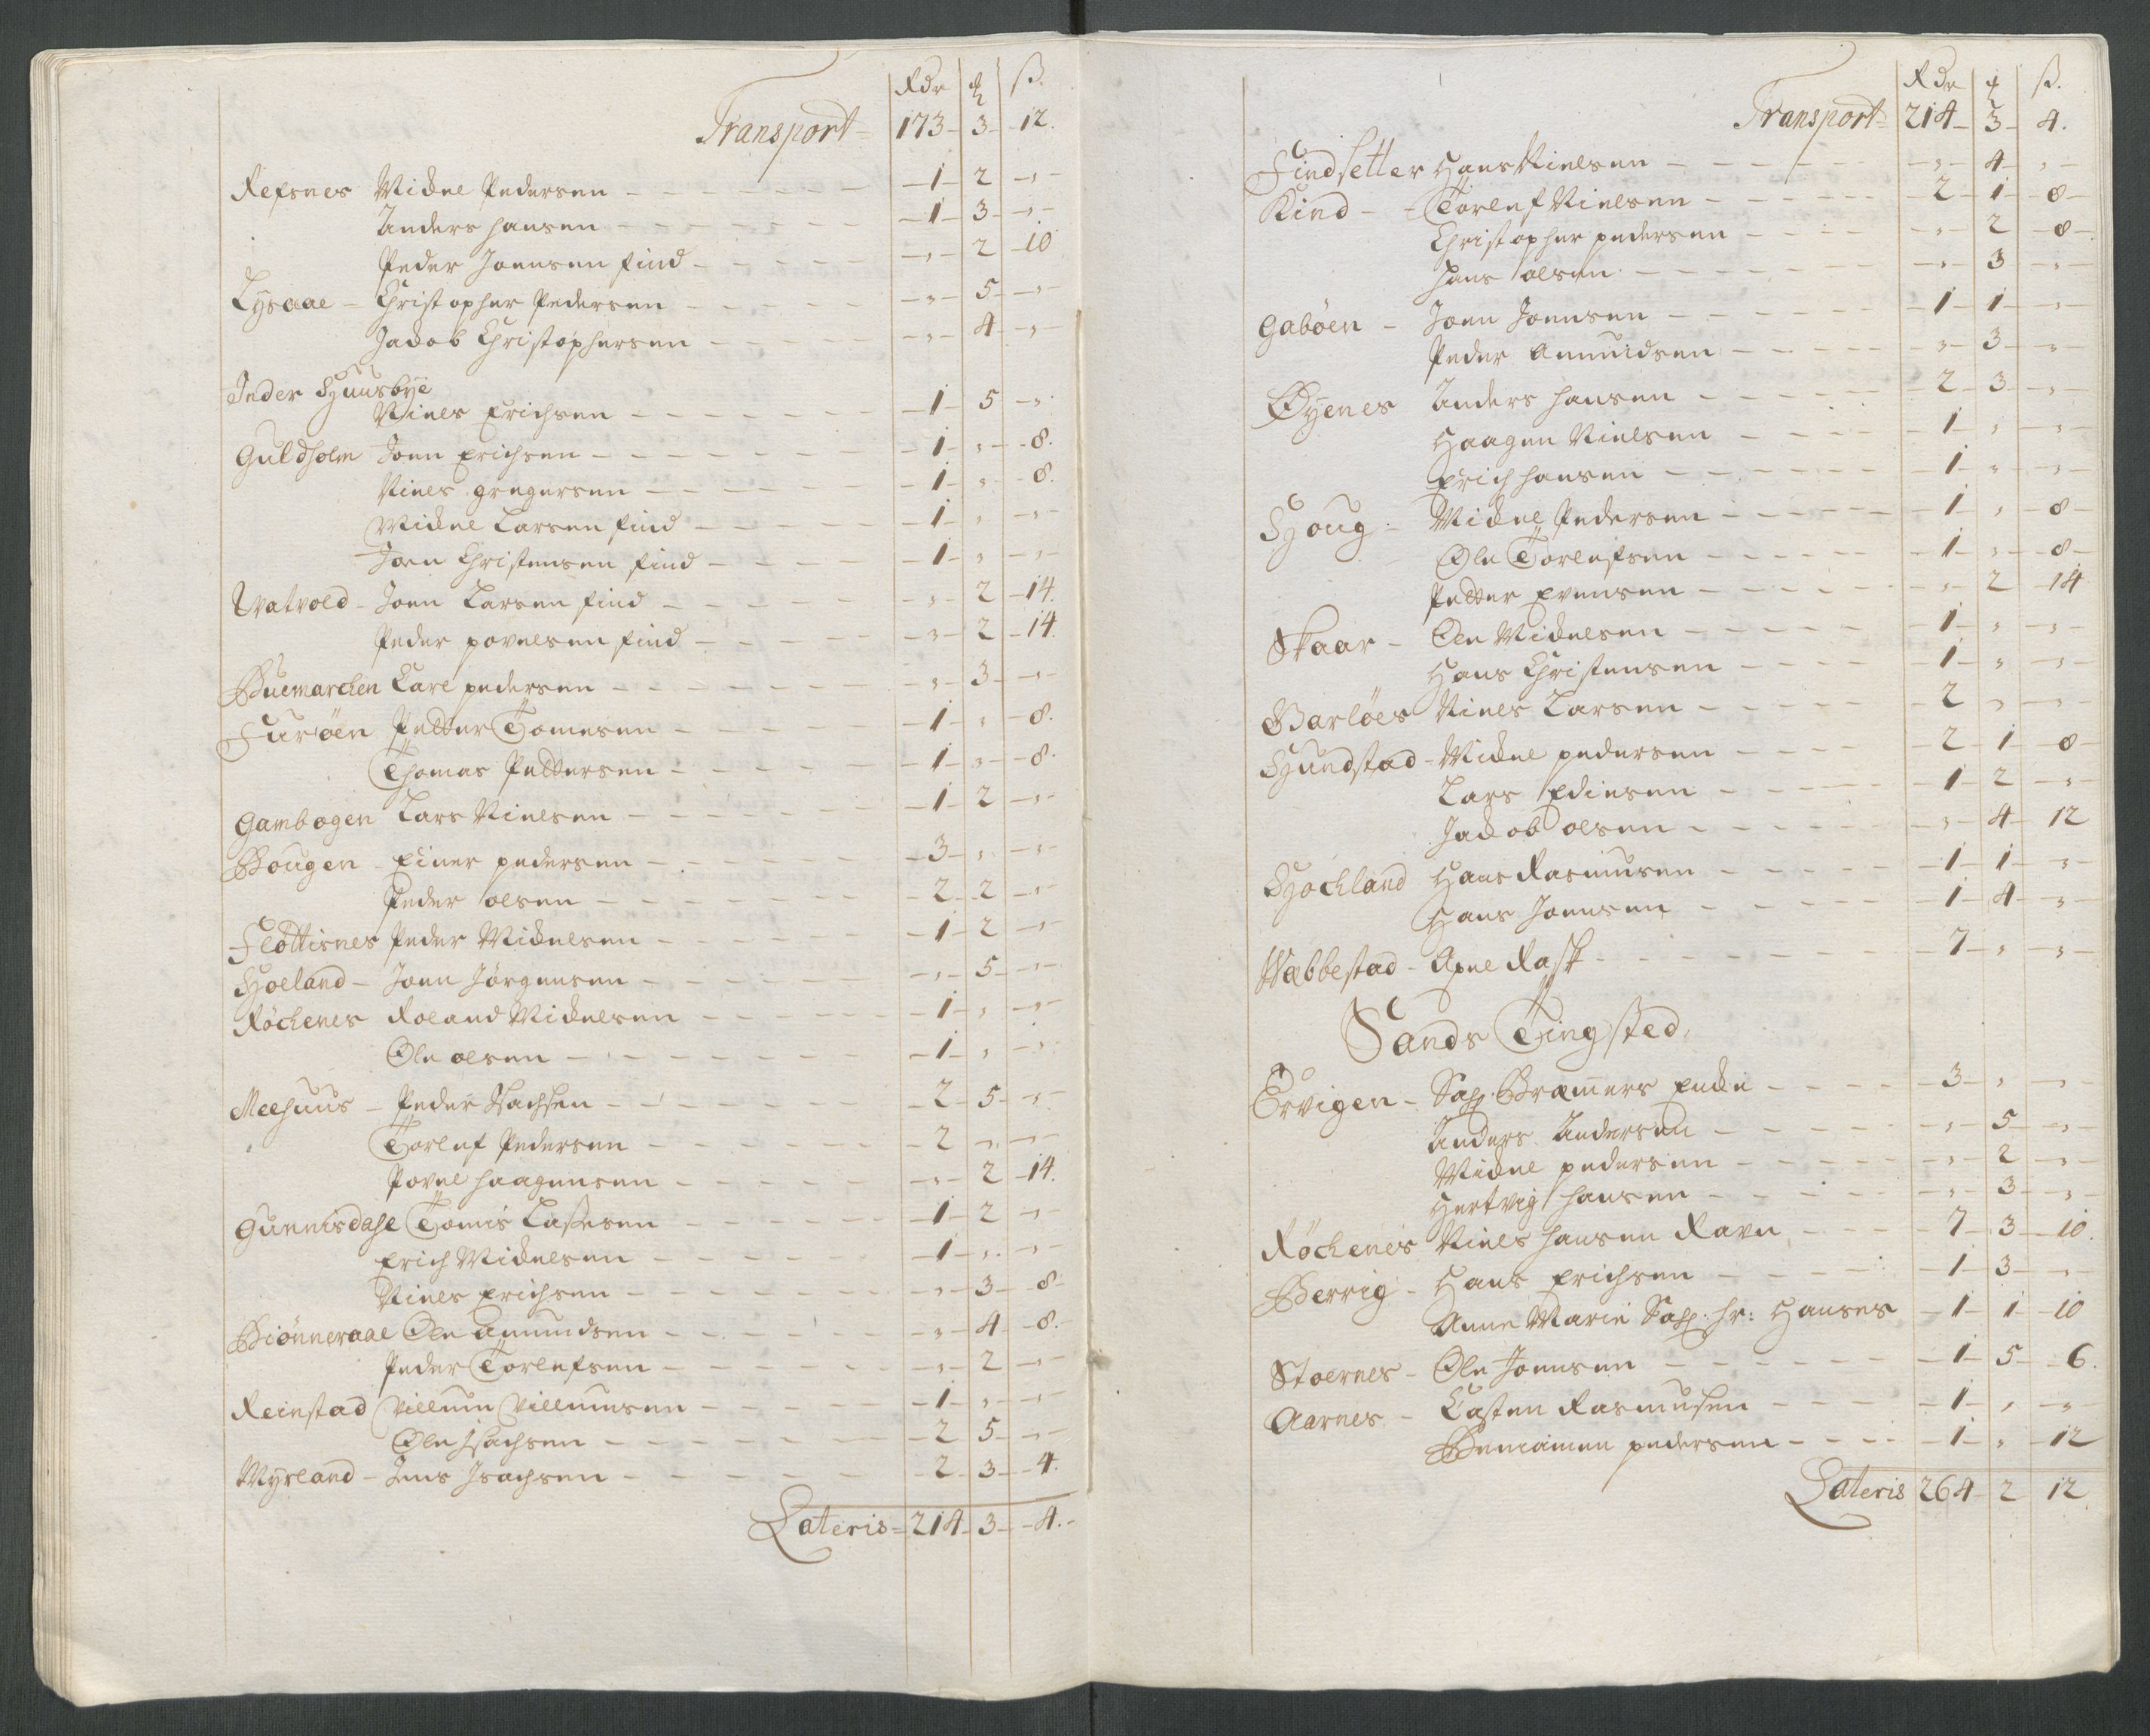 Rdr ꝗ ß.
Transport 173 - 3 - 12.
Refsnes Michel Pedersen - 1 - 2 - "
Anders hansen - 1 - 3 - "
Peder Joensen find - " - 2 - 10
Lysaae - Christopher Pedersen - " - 5 - "
Jacob Christophersen - " - 4 - "
Inder Huusbye
Niels Erichsen - 1 - 5 - "
Guldholm Joen Erichsen - 1 - " - 8.
Niels gregersen - 1 - " - 8.
Michel Larsen find - 1 - " - "
Joen Christensen find - 1 - " - "
Watvold - Joen Larsen find - " - 2 - 14.
Peder povelsen find - " - 2 - 14
Buemarchen Carl pedersen - " - 3 - "
Furøen Petter Tomesen - 1 - " - 8.
Thomas Pettersen - 1 - " - 8.
Gambogen Lars Nielsen - 1 - 2 - "
Bougen - Einer pedersen - 3 - " - "
Peder olsen - 2 - 2 - "
Fløttisnes Peder Michelsen - 1 - 2 - "
Hoeland - Joen Jørgensen - " - 5 - "
Røchenes Roland Michelsen - 1 - " - "
Ole olsen - 1 - " - "
Meehuus - Peder Isachsen - 2 - 5 - "
Torlef Pedersen - 2 - " - "
Povel haagensen - " - 2 - 14.
Gunnisdahl Tomis Lassesen - 1 - 2 - "
Erich Michelsen - 1 - " - "
Niels Erichsen - " - 3 - 8
Biønneraae Ole Amundsen - " - 4 - 8.
Peder Torlefsen - " - 2 - "
Reinstad Villum Villumsen - 1 - " - "
Ole Isachsen - 2 - 5 - "
Myrland - Jens Isachsen - 2 - 3 - 4.
Lateris - 214 - 3 - 4.
Rdr ꝗ ß.
Transport 214 - 3 - 4.
Findsetter Hans Nielsen - " - 4 - "
Kind - Torlef Nielsen - 2 - 1 - 8
Christopher pedersen - " - 2 - 8
Hans olsen - " - 3 - "
Gabøen - Joen Joensen - 1 - 1 - "
Peder Amundsen - " - 3 - "
Øyenes Anders hansen - 2 - 3 - "
Haagen Nielsen - 1 - " - "
Erich hansen - 1 - " - "
Houg - Michel Pedersen - 1 - " - 8
Ole Torlefsen - 1 - " - 8
Petter Evensen - " - 2 - 14
Skaar - Ole Michelsen - 1 - " - "
Hans Christensen - 1 - " - "
Barløes Niels Larsen - 2 - " - "
Hundstad - Michel pedersen - 2 - 1 - 8
Lars Edisen - 1 - 2 - "
Jacob olsen - " - 4 - 12
Hochland Hans Rasmusen - 1 - 1 - "
Hans Joensen - 1 - 4 - "
Wæbbestad - Axel Rask - 7 - " - "
Sands Tingsted.
Ervigen - Sahl. Bræmers Encke - 3 - " - "
Anders Andersen - " - 5 - "
Michel pedersen - " - 2 - "
Hertvig hansen - " - 3 - "
Røchenes Niels hansen Ravn - 7 - 3 - 10.
Berrig - Hans Erichsen - 1 - 3 - "
Anne Marie Sahl: hr: Hanses - 1 - 1 - 10
Stoernes - Ole Joensen - 1 - 5 - 6.
Aarnes - Casten Rasmusen - 1 - " - "
Beniamen pedersen - 1 - " - 12
Lateris 264 - 2 12